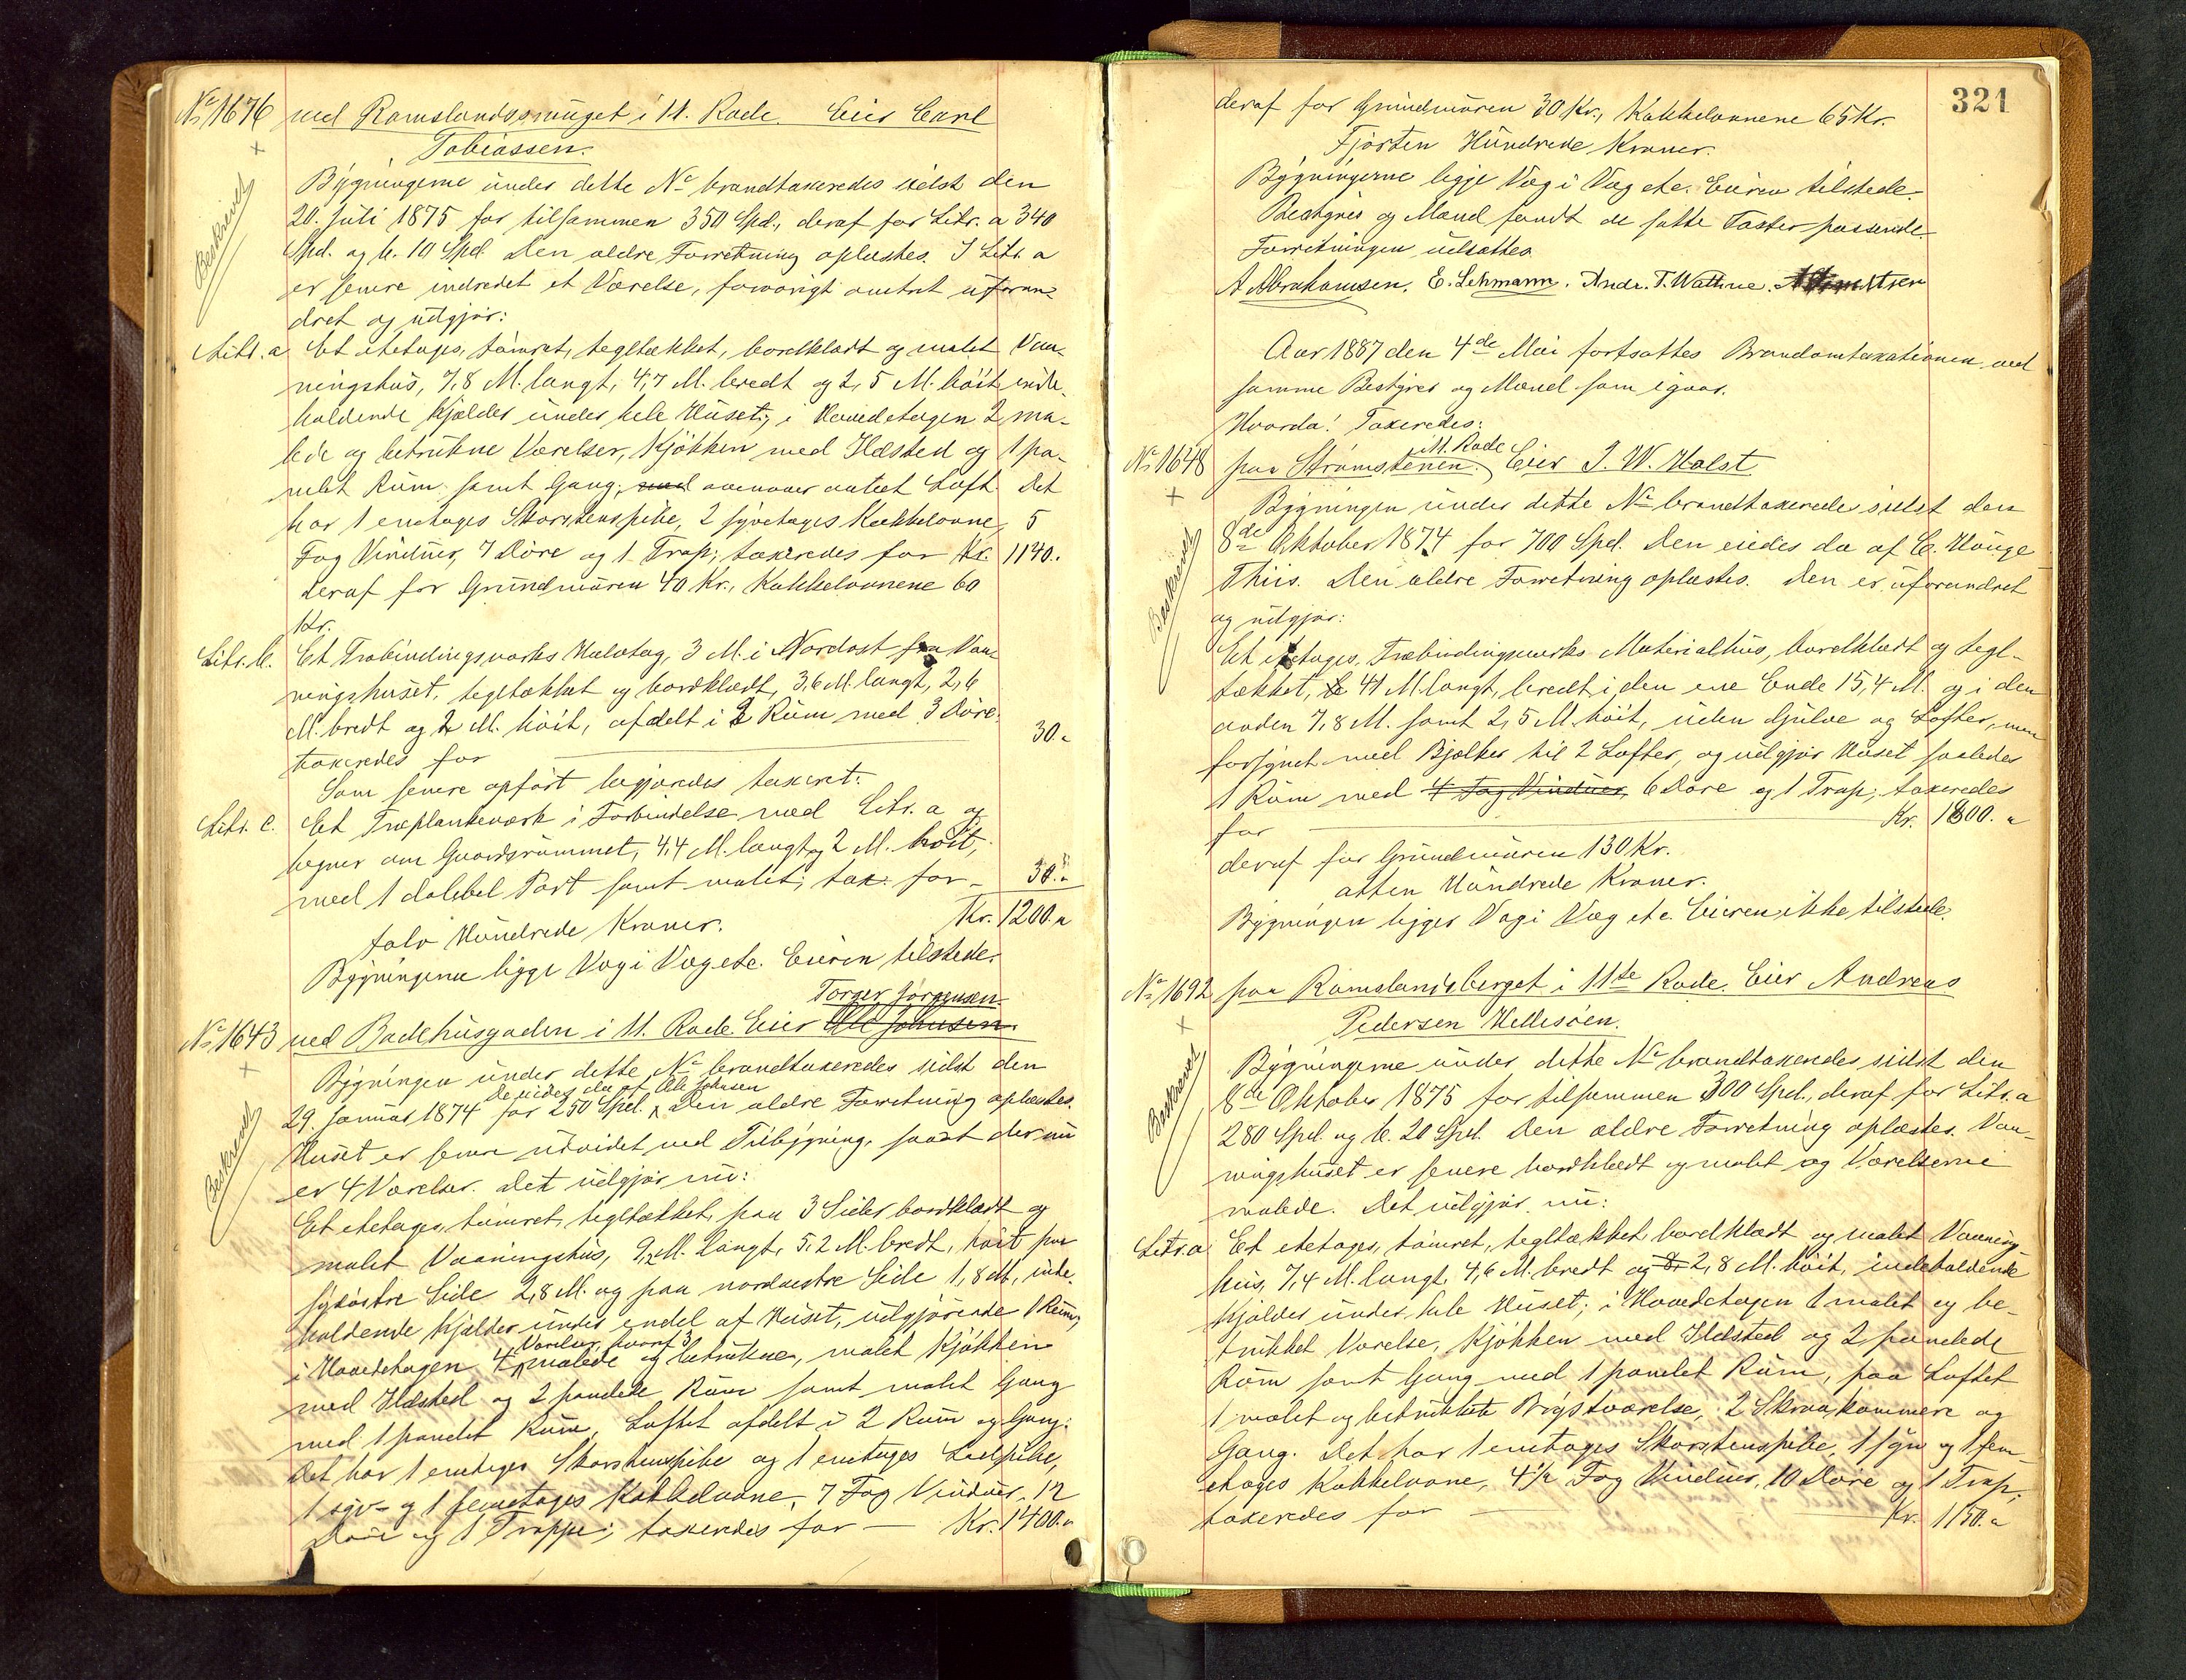 No 1676 ved Ramslandssmuget i 11. Rode. Eier Carl
Tobiassen.
Beskrevet
Bygningerne under dette No brandtaxeredes sidst den
20. Juli 1875 for tilsammen 350 Spd., deraf for Litr. a 340
Spd. og b. 10 Spd. Den ældre Forretning oplæstes. I Litr. a
er senere indredet et Værelse, forøvrigt omtrent uforan-
dret og udgjør:
Litr. a Et etetages, tømret, tegltækket, bordklædt og malet Vaa-
ningshus, 7,8 M. langt, 4,7 M. bredt og 2,5 M. høit inde-
holdende Kjælder under hele Huset; i Hovedetagen 2 ma-
lede og betrukne Værelser, Kjøkken med Ildsted og 1 pa-
nelet Rum samt Gang; med ovenover aabent Loft. Det
har 1 enetages Skorstenspibe, 2 syvetages Kakkelovne, 5
Fag Vinduer, 7 Døre og 1 Trap; taxeredes for Kr. 1140.
deraf for Grundmuren 40 Kr., Kakkelovnene 60
Kr.
Litr. b. Et Træbindingsværks Halvtag, 3 M. i Nordost fra Vaa-
ningshuset, tegltækket og bordklædt, 3,6 M. langt, 2,6
M. bredt og 2 M. høit, afdelt i 2 Rum med 3 Døre.
taxeredes for 30.-
Som senere opført begjæredes taxeret:
Litr. c. Et Træplankeværk i Forbindelse med Litr. a og
hegner om Gaardsrummet, 4,4 M. langt og 2 M. høit,
med 1 dobbel Port samt malet; tax. for - 30.-
Kr. 1200.-
tolv Hundrede Kroner.
Bygningerne ligge Væg i Væg etc. Eieren tilstede.
Torger Jørgensen
No 1643 ved Badehusgaden i 11. Rode. Eier Ole Johnsen.
Beskrevet
Bygningen under dette No brandtaxeredes sidst den
De eiedes da af Ole Johnsen
29. Januar 1874 for 250 Spd. Den ældre Forretning oplæstes.
Huset er senere udvidet med Tilbygning, saaat der nu
er 4 Værelser. Det udgjør nu:
Et etetages, tømret, tegltækket, paa 3 Sider bordklædt og
malet Vaaningshus, 9,2 M. langt, 5,2 M. bredt, høit paa
sydøstre Side 2,8 M. og paa nordvestre Side 1,8 M., inde-
holdende Kjælder under endel af Huset, udgjørende 1 Rum,
Værelser, hvoraf 3
i Hovedetagen 4 malede og betrukne, malet Kjøkken
med Ildsted og 2 panelede Rum samt malet Gang
med 1 panelet Rum, Loftet afdelt i 2 Rum og Gang.
Det har 1 enetages Skorstenspibe og 1 enetages Ledpibe,
1 syv- og 1 femetages Kakkelovne, 7 Fag Vinduer, 12
Døre og 1 Trappe; taxeredes for — Kr. 1400.-
321
deraf for Grundmuren 30 Kr., Kakkelovnene 65 Kr.
Fjorten Hundrede Kroner.
Bygningerne ligge Væg i Væg etc. Eieren tilstede.
Bestyrer og Mænd fandt de satte Taxter passende.
Forretningen udsattes.
A. Abrahamsen. E. Lehmann. Andr. T. Wathne.
Aar 1887 den 4de Mai fortsattes Brandomtaxationen ved
samme Bestyrer og Mænd som igaar.
Hvorda! Taxeredes:
i 11. Rode
No 1648 paa Strømstenen. Eier I. W. Holst
Beskrevet
Bygningen under dette No brandtaxeredes sidst den
8de Oktober 1874 for 700 Spd. Den eiedes da af C. Hauge
Thiis. Den ældre Forretning oplæstes. Den er uforandret
og udgjør:
Et etetages, Træbindingsværks Materialhus, bordklædt og tegl-
tækket, 41 M. langt, bredt i den ene Ende 15,4 M. og i den
anden 7,8 M. samt 2,5 M. høit, uden Gulve og Lofter, men
forsynet med Bjælker til 2 Lofter, og udgjør Huset saaledes
1 Rum med 4 Fag Vinduer, 6 Døre og 1 Trap; taxeredes
for Kr. 1800.-
deraf for Grundmuren 130 Kr.
atten Hundrede Kroner.
Bygningen ligger Væg i Væg etc. Eieren ikke tilstede.
No 1692 paa Ramslandsberget i 11te Rode. Eier Andreas
Pedersen Hellisøen.
Beskrevet
Bygningerne under dette No brandtaxeredes sidst den
8de Oktober 1875 for tilsammen 300 Spd., deraf for Litr. a
280 Spd. og b. 20 Spd. Den ældre Forretning oplæstes. Vaa-
ningshuset er senere bordklædt og malet og Værelserne
malede. Det udgjør nu:
Litr. a Et etetages, tømret, tegltækket, bordklædt og malet Vaaning-
hus, 7,4 M. langt, 4,6 M. bredt og 2,8 M. høit, indeholdende
Kjælder under hele Huset; i Hovedetagen 1 malet og be-
trukket Værelse, Kjøkken med Ildsted og 2 panelede
Rum samt Gang med 1 panelet Rum, paa Loftet
1 malet og betrukket Bryst værelse, 2 Skraakammere og
Gang. Det har 1 enetages Skorstenspibe, 1 syv og 1 fem-
etages Kakkelovne, 4½ Fag Vinduer, 10 Døre og 1 Trap;
taxeredes for Kr. 1150.-